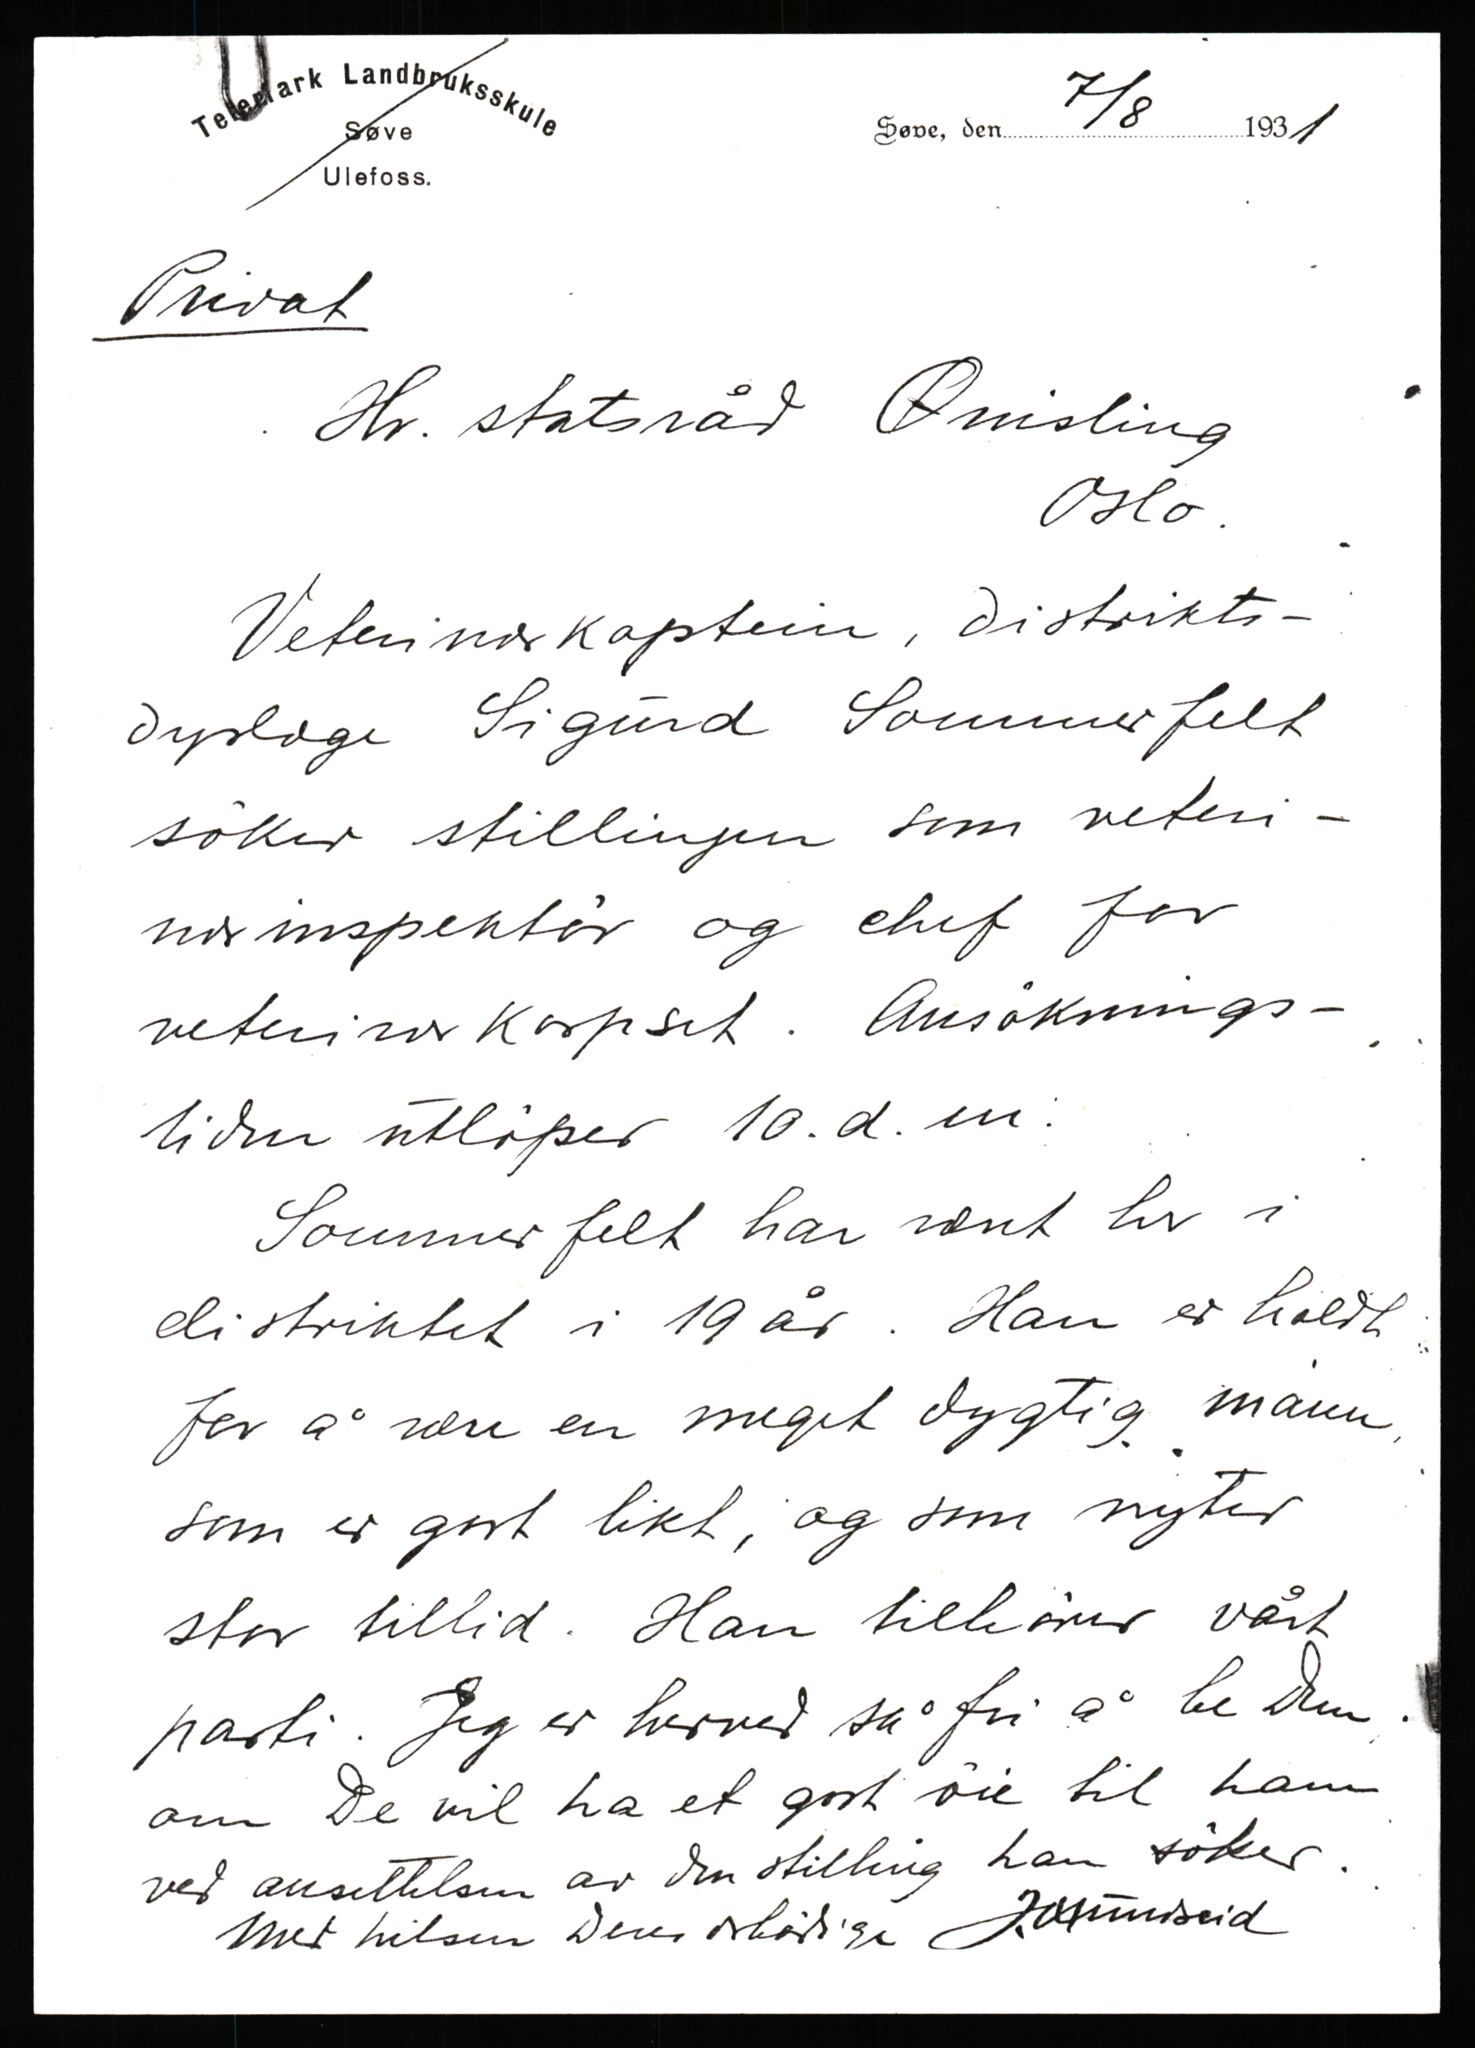 Telemark Landbruksskule
Søve
Ulefoss.
Søve, den 7/8 1931
Privat
Hr. statsråd Quisling
Oslo.
Veterinærkaptein, distrikts-
dyrlæge Sigurd Sommerfelt
söker stillingen som veteri-
nærinspektör og chef for
veterinærkorpset. Ansöknings-
tiden utlöper 10. d. m.
Sommerfelt har vært her i
distriktet i 19 år. Han er holdt
for å være en meget dygtig mann,
som er godt likt, og som nyter
stor tillid. Han tilhörer vårt
parti. Jeg er herved så fri å be Dem
om De vil ha et godt öie til ham
ved ansettelsen av den stilling han söker.
Med hilsen Deres ærbödige